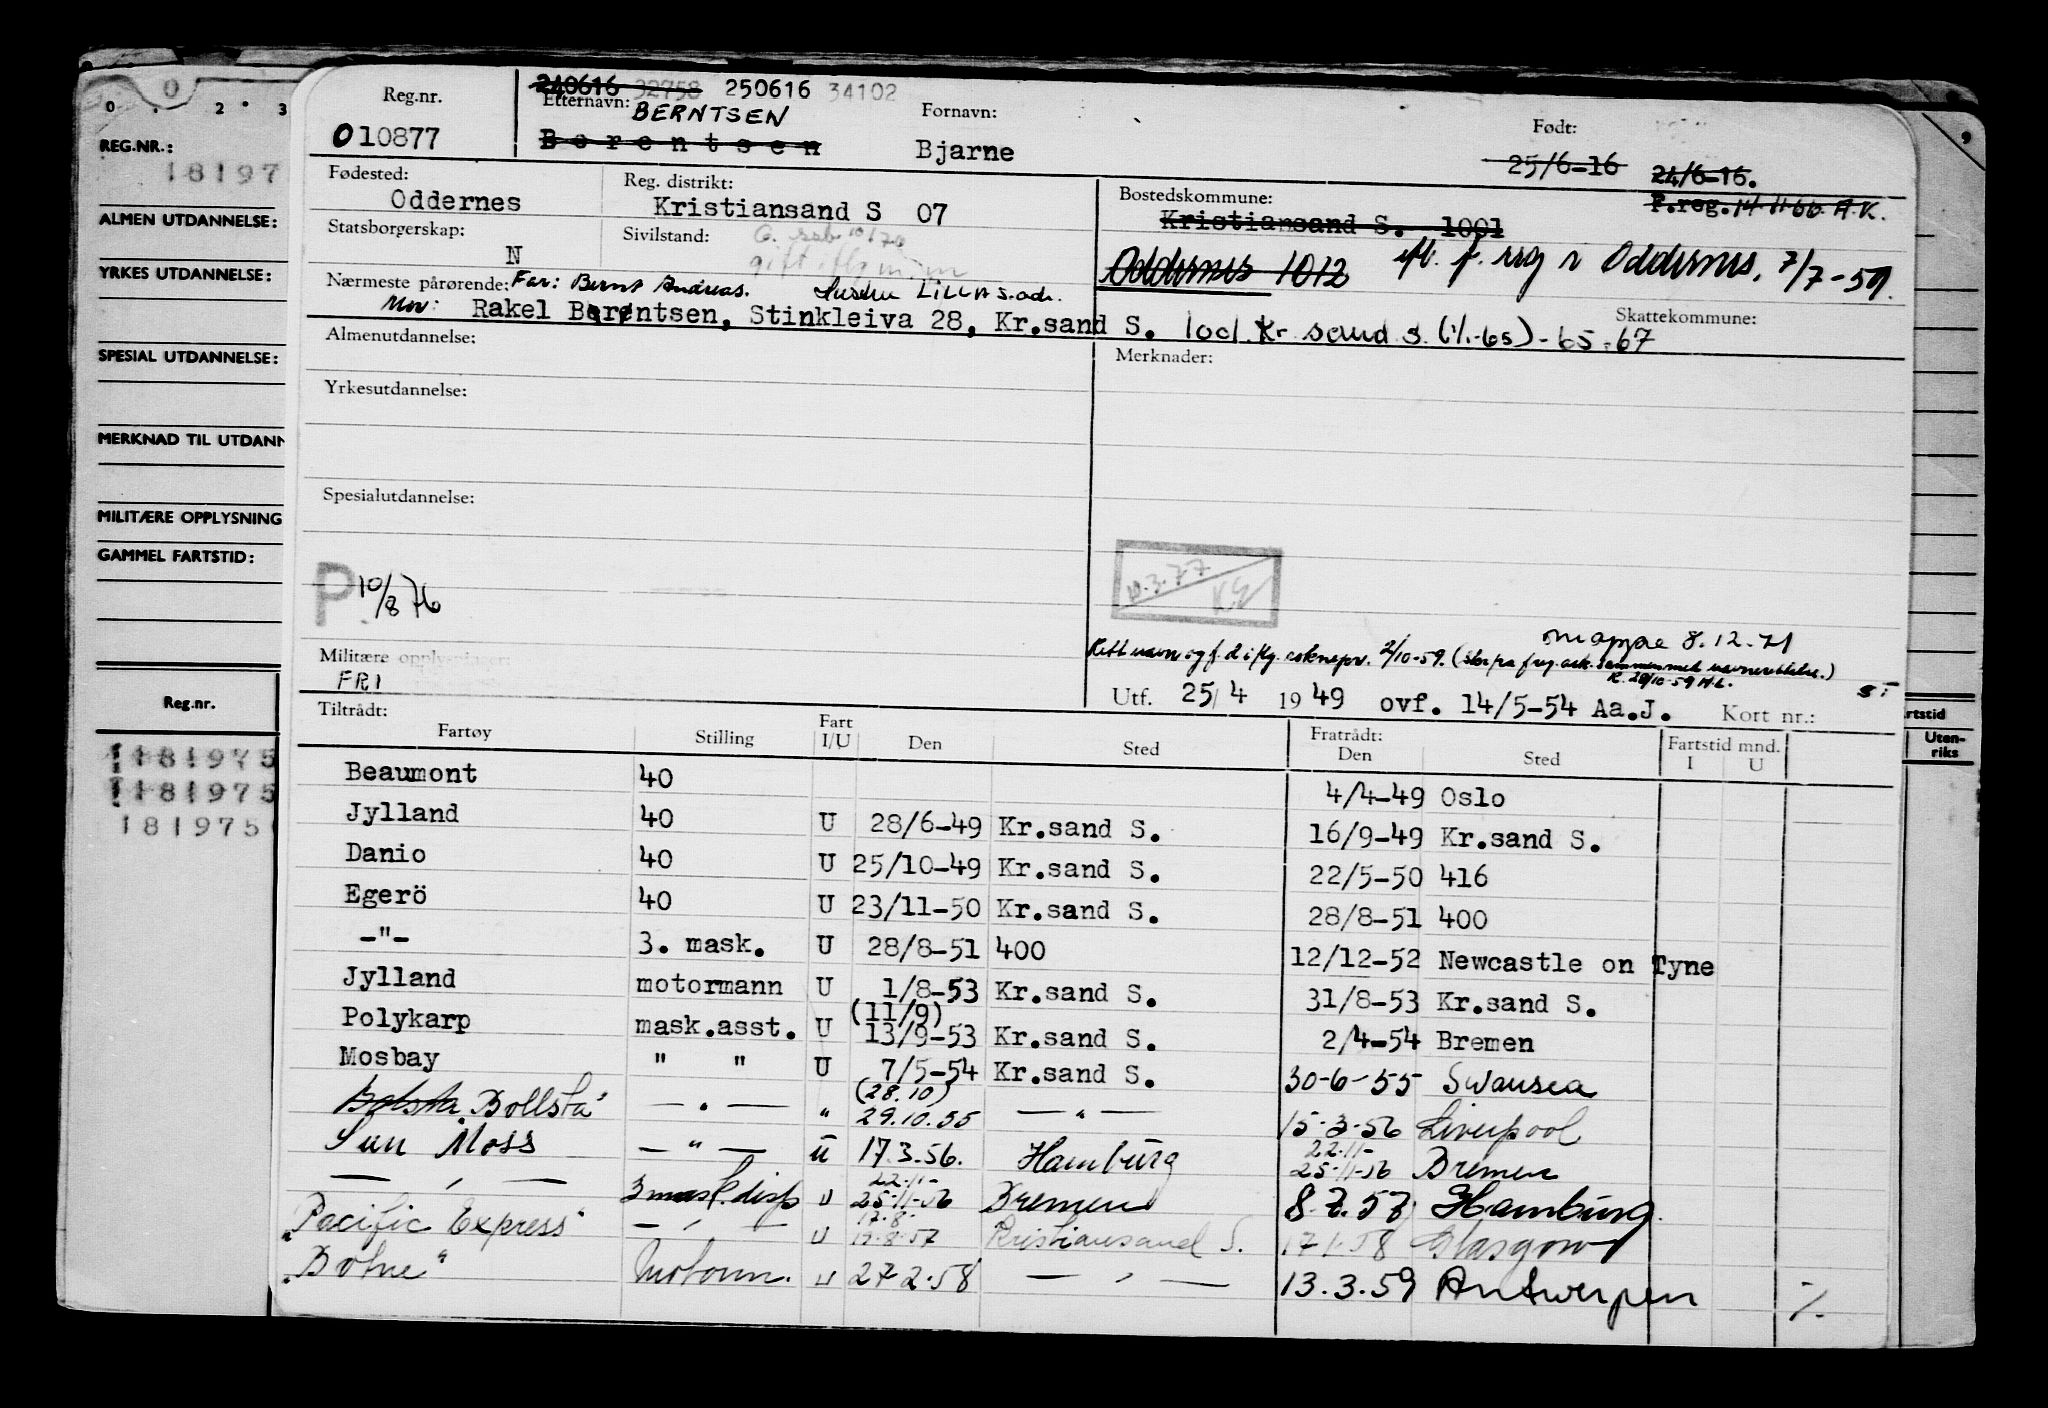 240616 32758 250616 34102
Reg.nr. Etternavn: BERNTSEN Fornavn: Født:
010877 Berentsen Bjarne 25/6-16 24/6-16.
P.reg. 14.11.66. A.K.
Fødested: Reg. distrikt: Bostedskommune:
Oddernes Kristiansand S 07 Kristiansand S. 1001
Statsborgerskap: Sivilstand:
N Oddernes 1012 Oddernes, 7/7-59.
Nærmeste pårørende: Far: Bernt Andreas. LILLA s. adr.
Mor: Rakel Berentsen, Stinkleiva 28, Kr.sand S. 1001 Kr sand s (1/1-65) - 65-67 Skattekommune:
Almenutdannelse: Merknader:
Yrkesutdannelse:
Spesialutdannelse:
P 10/8 76 10.3.77 KE
mappe 8.12.71
Rett navn og f.d. iflg. 2/10-59.
R. 20/10-59 H.L.
Militære opplysninger:
FRI
Utf. 25/4 1949 ovf. 14/5-54 Aa.J. Kort nr.:
Tiltrådt: Fratrådt:
Fartøy Stilling Fart I/U Den Sted Den Sted Fartstid mnd. I U
Beaumont 40 4/4-49 Oslo
Jylland 40 U 28/6-49 Kr.sand S. 16/9-49 Kr.sand S.
Danio 40 U 25/10-49 Kr.sand S. 22/5-50 416
Egerö 40 U 23/11-50 Kr.sand S. 28/8-51 400
-"- 3. mask. U 28/8-51 400 12/12-52 Newcastle on Tyne
Jylland motormann U 1/8-53 Kr.sand S. 31/8-53 Kr.sand S.
Polykarp mask.asst. U (11/9) 13/9-53 Kr.sand S. 2/4-54 Bremen
Mosbay " " U 7/5-54 Kr.sand S. 30-6-55 Swansea
Bolsta Bollsta" — " — " (28.10) 29.10.55 — " — 15-3-56 Liverpool
Sun Moss — " — u 17.3.56. Hamburg 22.11- 25-11-56 Bremen
— " — 3 mask.disp u 22.11- 25-11-56 Bremen 8.7.57 Hamburg.
"Pacific Express" — " — u 17.8. 19.8.57 Kristiansand S. 17.1.58 Glasgow
"Botne" Motorm. u 27 2.58 — " — 13.3.59 Antwerpen %
0 . 2 . 3
REG.NR.:
18197
ALMEN UTDANNELSE:
YRKES UTDANNELSE:
SPESIAL UTDANNELSE:
MERKNAD TIL UTDANN
MILITÆRE OPPLYSNING
GAMMEL FARTSTID:
Reg.nr.
181975
181975
181975
9
rtstid
Uten-
riks